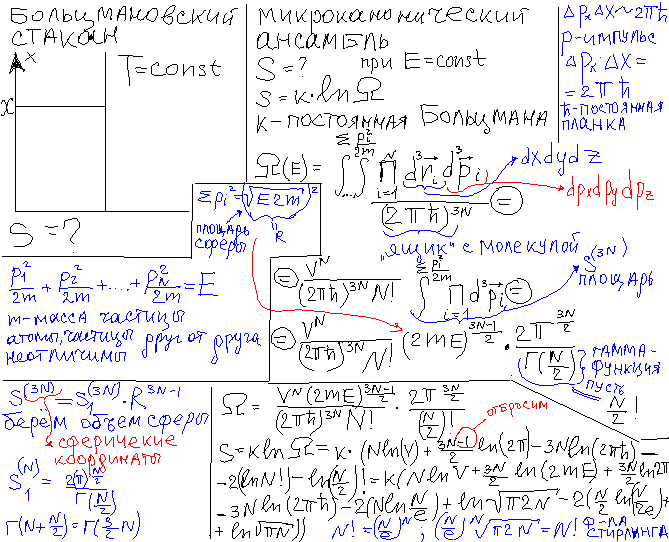 БОЛЬЦМАНОВСКИЙ
СТАКАН
x
x
T=const
S=?
МИКРОКАНОНИЧЕСКИЙ
АНСАМБЛЬ
S=? при E=const
S=k·lnΩ
k-ПОСТОЯННАЯ БОЛЬЦМАНА
ΔPxΔX~2πħ
P-ИМПУЛЬС
ΔPx·ΔX=
=2πħ
ħ-ПОСТОЯННАЯ
ПЛАНКА
Ω(E)=∫∫...∫ ∏(i=1..N) d³r⃗i d³p⃗i / (2πħ)^3N =
Σ Pi²/2m
dxdydz
dpxdpydpz
Σpi²=(√E2m)²
ПЛОЩАДЬ
СФЕРЫ
R
"ЯЩИК" С МОЛЕКУЛОЙ
P1²/2m + P2²/2m +...+ PN²/2m = E
m-МАССА ЧАСТИЦЫ
АТОМЫ, ЧАСТИЦЫ ДРУГ ОТ ДРУГА
НЕОТЛИЧИМЫ
= V^N/((2πħ)^3N N!) ∫ ∏(i=1) d³p⃗i =
Σ Pi²/2m
S^(3N)
ПЛОЩАДЬ
= V^N/((2πħ)^3N N!) (2mE)^(3N-1)/2 · 2π^(3N/2)/Γ(N/2)
ГАММА-
ФУНКЦИЯ
ПУСТЬ
N/2!
S^(3N)=S1^(3N)·R^3N-1
берём объём сферы
сферические
координаты
S1^(N)=2(π)^(N/2)/Γ(N/2)
Γ(N+N/2)=Γ(3/2 N)
Ω= V^N(2mE)^(3N-1)/2 / ((2πħ)^3N N!) · 2π^(3N/2)/(N/2)!
отбросим
S=klnΩ=k·(Nln(V)+(3N-1)/2 ln(2π)-3Nln(2πħ)-
-2(lnN!)-ln(N/2)!=k(NlnV+3N/2 ln(2mE)+3N/2 ln2π
-3Nln(2πħ)-2(Nln N/e)+ln√π2N-2(N/2 ln(N/2e)+
+ln√πN))
N!=(N/e)^N; (N/e)^N√π2N=N! Ф-ЛА
СТИРЛИНГА